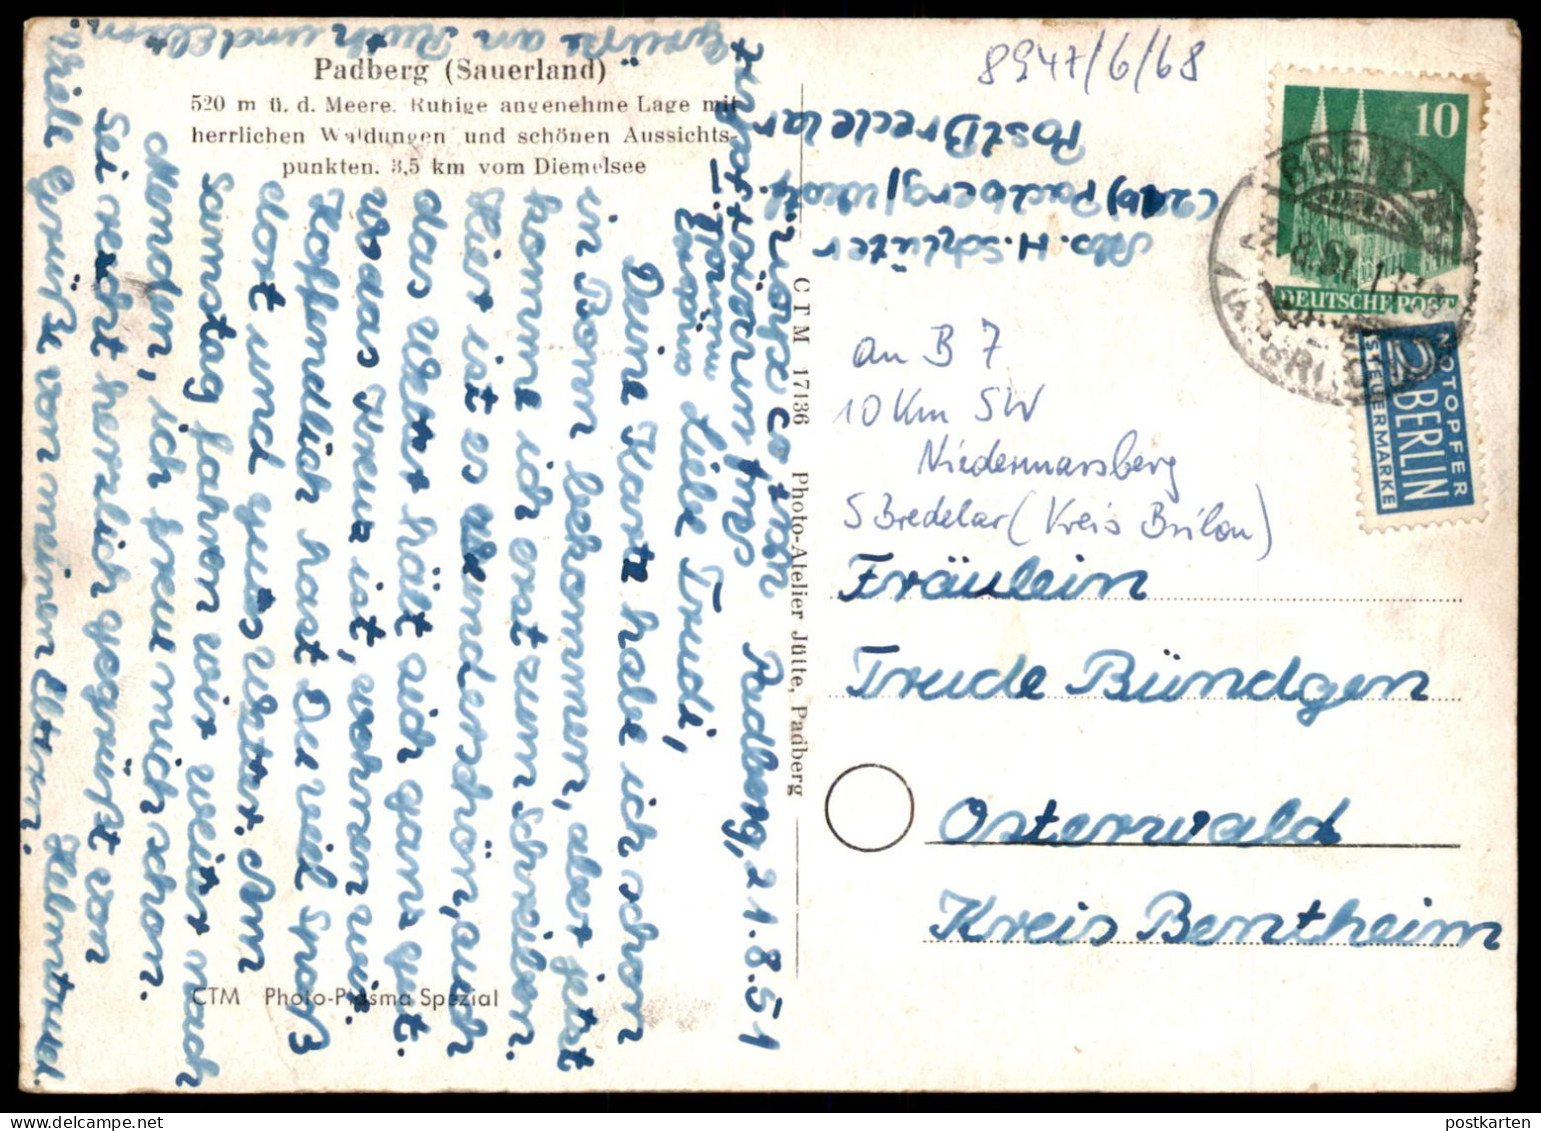 Padberg (Sauerland)
520 m ü. d. Meere. Ruhige angenehme Lage mit
herrlichen Waldungen und schönen Aussichts-
punkten. 3,5 km vom Diemelsee
Padberg, 21.8.51
Liebe Trudi,
Deine Karte habe ich schon
in Bonn bekommen, aber jetzt
komme ich erst zum schreiben.
Hier ist es wunderschön, auch
das Wetter hält sich ganz gut.
Was Kreuz ist, wohnen wir.
Hoffendlich hast Du viel Spaß
dort und gutes Wetter. Am
Samstag fahren wir weiter nach
Menden, ich freu mich schon.
Sei recht herzlich gegrüßt von
Helmtrud.
Viele Grüße von meinen Eltern.
Grüße an Ruth und Eltern
CTM Photo-Prisma Spezial
CTM 17136 Photo-Atelier Jütte, Padberg
Abs. H. Schlüter
(21b) Padberg/Westf.
Post Bredelar
8947/6/68
10
DEUTSCHE POST
NOTOPFER
2 BERLIN
STEUERMARKE
an B 7
10 Km SW
Niedermarsberg
S Bredelar (Kreis Brilon)
Fräulein
Trude Bündgen
Osterwald
Kreis Bentheim
postkarten